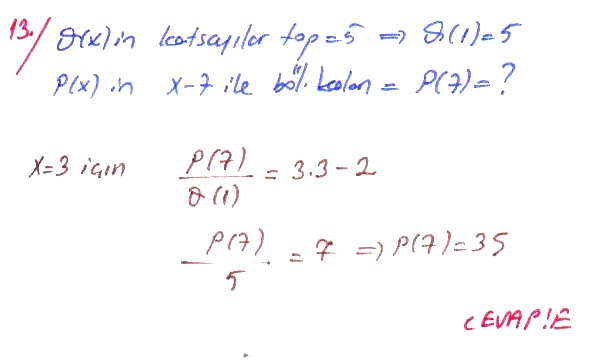 13./ Q(x) in katsayılar top = 5 ⇒ Q(1) = 5
P(x) in x-7 ile böl. kalan = P(7) = ?
x=3 için P(7)/Q(1) = 3.3 - 2
P(7)/5 = 7 ⇒ P(7) = 35
CEVAP:E